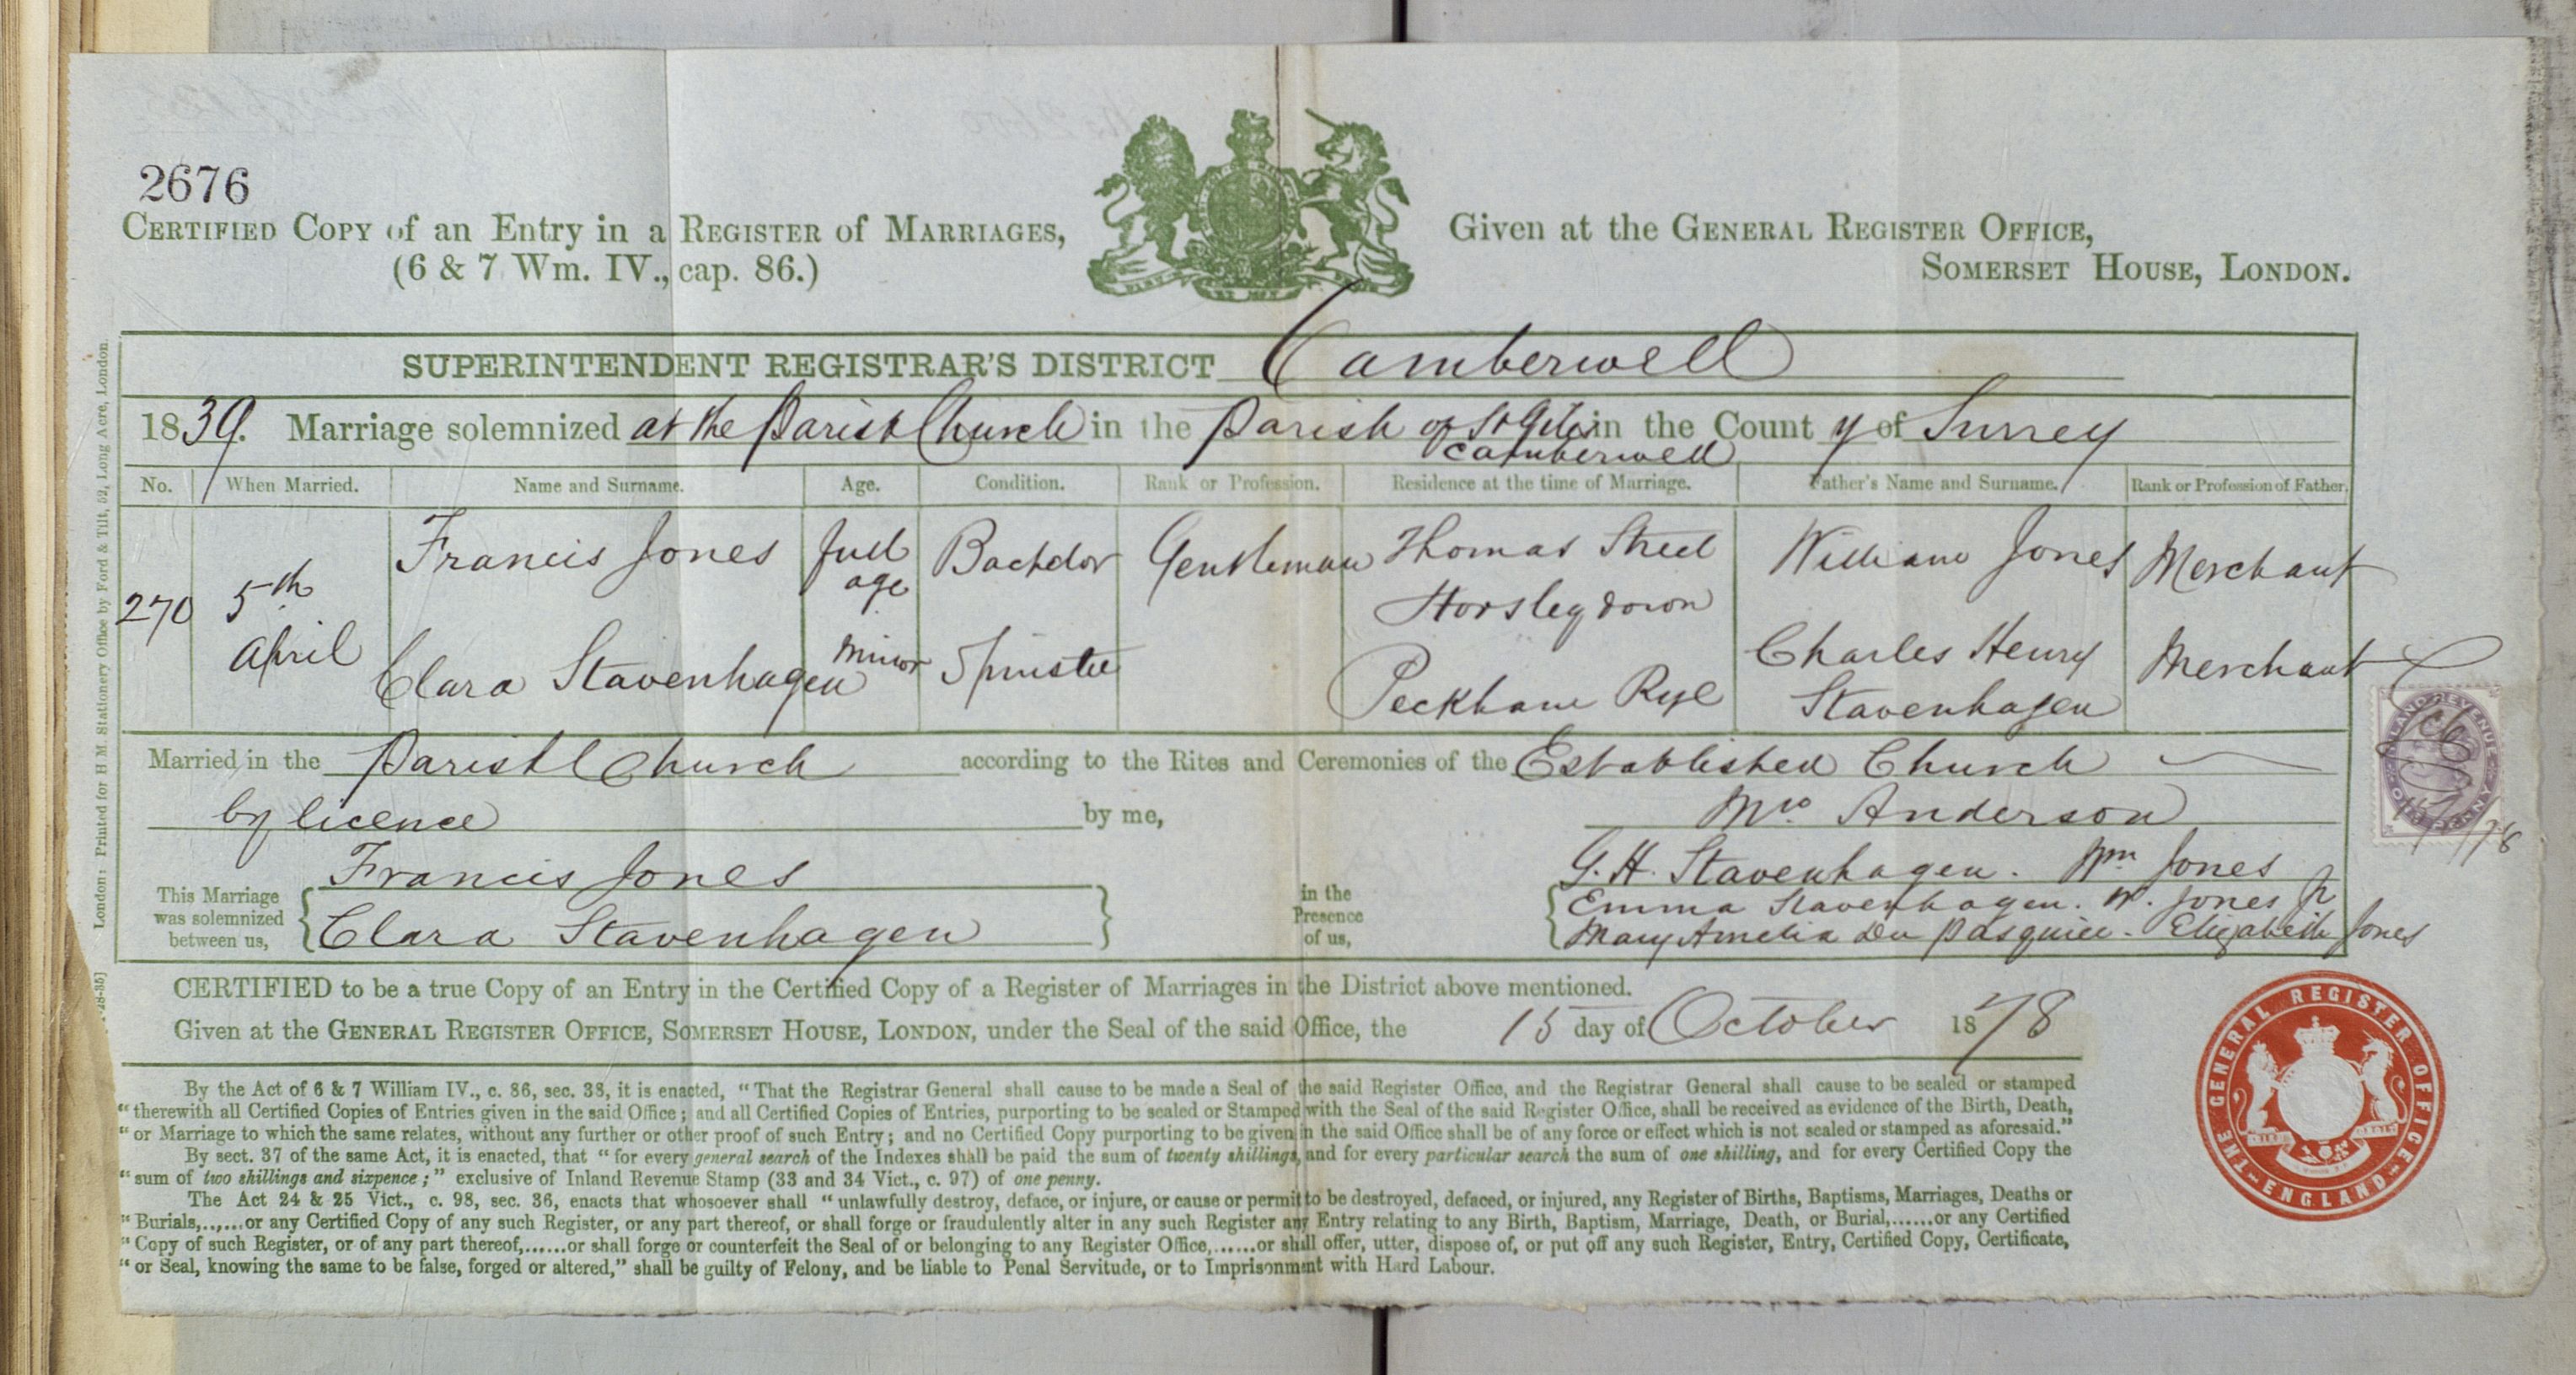 2676
CERTIFIED COPY of an Entry in a REGISTER of MARRIAGES,
(6 & 7 Wm. IV., cap. 86.)
Given at the GENERAL REGISTER OFFICE,
SOMERSET HOUSE, LONDON.
SUPERINTENDENT REGISTRAR'S DISTRICT Camberwell
1839. Marriage solemnized at the Parish Church in the Parish of St Giles in the County of Surrey
Camberwell
No. When Married. Name and Surname. Age. Condition. Rank or Profession. Residence at the time of Marriage. Father's Name and Surname. Rank or Profession of Father.
270 5th April Francis Jones full age Bachelor Gentleman Thomas Street Horsleydown William Jones Merchant
Clara Stavenhagen minor Spinster Peckham Rye Charles Henry Stavenhagen Merchant
Married in the Parish Church according to the Rites and Ceremonies of the Established Church
by licence by me, Anderson
This Marriage was solemnized between us, Francis Jones
Clara Stavenhagen
in the Presence of us, G. H. Stavenhagen. Wm Jones
Emma Stavenhagen. W. Jones Jr
Mary Amelia Du Pasquier - Elizabeth Jones
CERTIFIED to be a true Copy of an Entry in the Certified Copy of a Register of Marriages in the District above mentioned.
Given at the GENERAL REGISTER OFFICE, SOMERSET HOUSE, LONDON, under the Seal of the said Office, the 15 day of October 1878
By the Act of 6 & 7 William IV., c. 86, sec. 38, it is enacted, "That the Registrar General shall cause to be made a Seal of the said Register Office, and the Registrar General shall cause to be sealed or stamped
"therewith all Certified Copies of Entries given in the said Office; and all Certified Copies of Entries, purporting to be sealed or Stamped with the Seal of the said Register Office, shall be received as evidence of the Birth, Death,
"or Marriage to which the same relates, without any further or other proof of such Entry; and no Certified Copy purporting to be given in the said Office shall be of any force or effect which is not sealed or stamped as aforesaid."
By sect. 37 of the same Act, it is enacted, that "for every general search of the Indexes shall be paid the sum of twenty shillings, and for every particular search the sum of one shilling, and for every Certified Copy the
"sum of two shillings and sixpence;" exclusive of Inland Revenue Stamp (33 and 34 Vict., c. 97) of one penny.
The Act 24 & 25 Vict., c. 98, sec. 36, enacts that whosoever shall "unlawfully destroy, deface, or injure, or cause or permit to be destroyed, defaced, or injured, any Register of Births, Baptisms, Marriages, Deaths or
"Burials,......or any Certified Copy of any such Register, or any part thereof, or shall forge or fraudulently alter in any such Register any Entry relating to any Birth, Baptism, Marriage, Death, or Burial,......or any Certified
"Copy of such Register, or of any part thereof,......or shall forge or counterfeit the Seal of or belonging to any Register Office,......or shall offer, utter, dispose of, or put off any such Register, Entry, Certified Copy, Certificate,
"or Seal, knowing the same to be false, forged or altered," shall be guilty of Felony, and be liable to Penal Servitude, or to Imprisonment with Hard Labour.
London: Printed for H M. Stationery Office by Ford & Tilt, 52, Long Acre, London.
INLAND REVENUE
ONE PENNY
THE GENERAL REGISTER OFFICE
ENGLAND